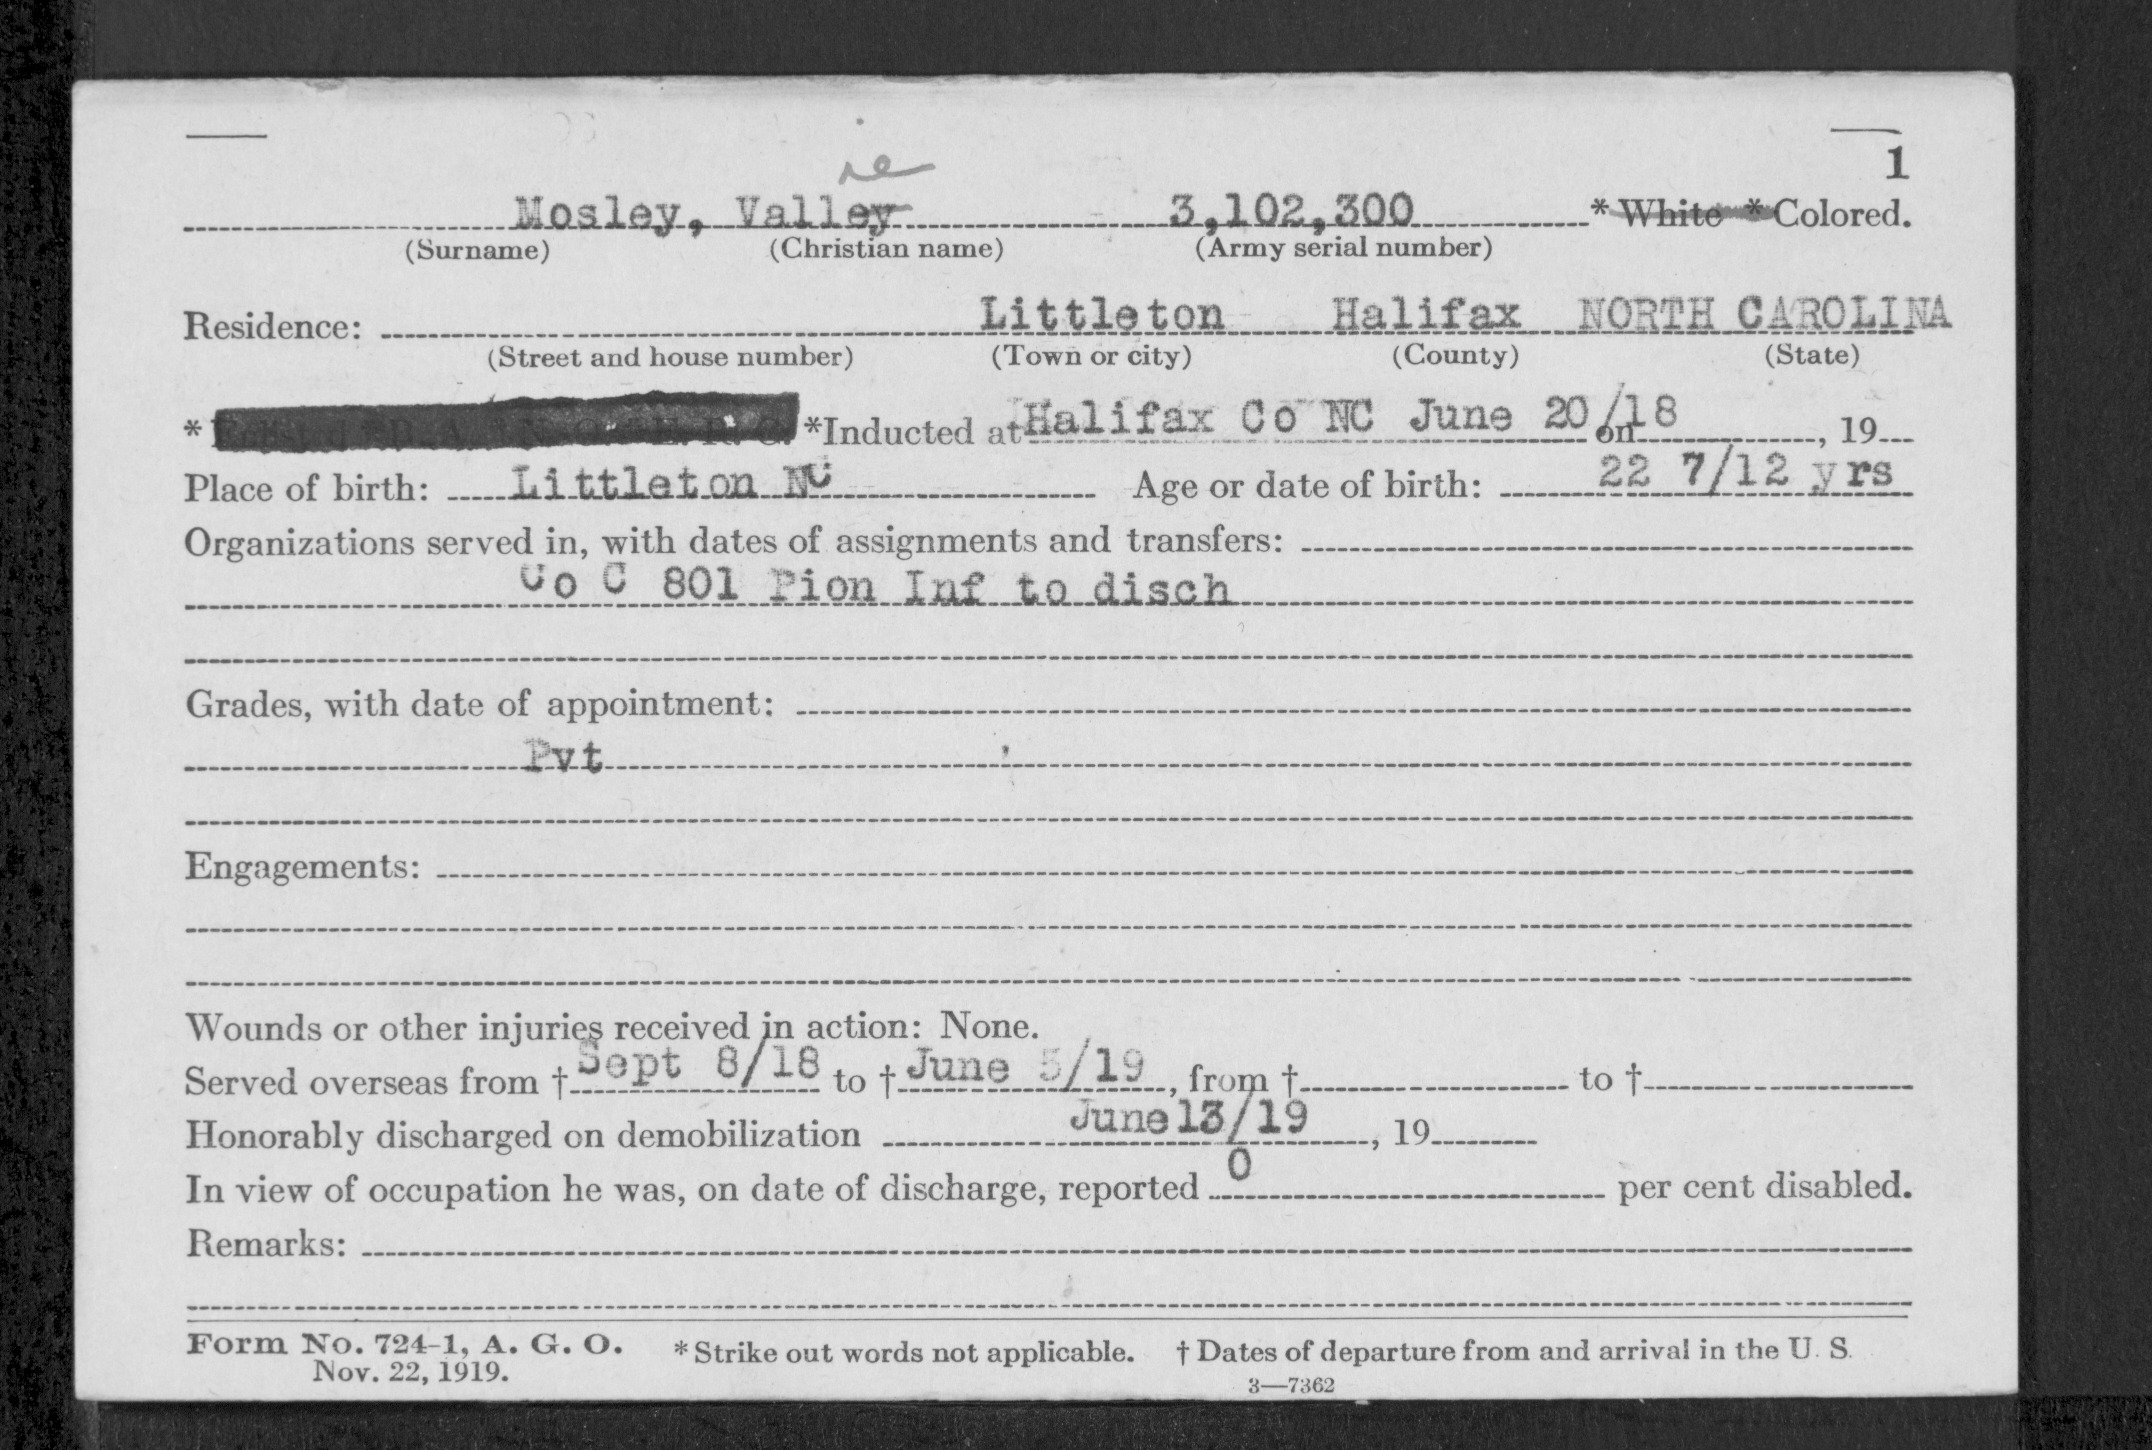 1
ie
Mosley, Valley 3,102,300 * White * Colored.
(Surname) (Christian name) (Army serial number)
Residence: Littleton Halifax NORTH CAROLINA
(Street and house number) (Town or city) (County) (State)
* *Inducted at Halifax Co NC June 20/18 on , 19
Place of birth: Littleton NC Age or date of birth: 22 7/12 yrs
Organizations served in, with dates of assignments and transfers:
Co C 801 Pion Inf to disch
Grades, with date of appointment:
Pvt
Engagements:
Wounds or other injuries received in action: None.
Served overseas from † Sept 8/18 to † June 5/19, from † to †
Honorably discharged on demobilization June 13/19, 19
In view of occupation he was, on date of discharge, reported 0 per cent disabled.
Remarks:
Form No. 724-1, A. G. O. * Strike out words not applicable. † Dates of departure from and arrival in the U. S.
Nov. 22, 1919. 3—7362